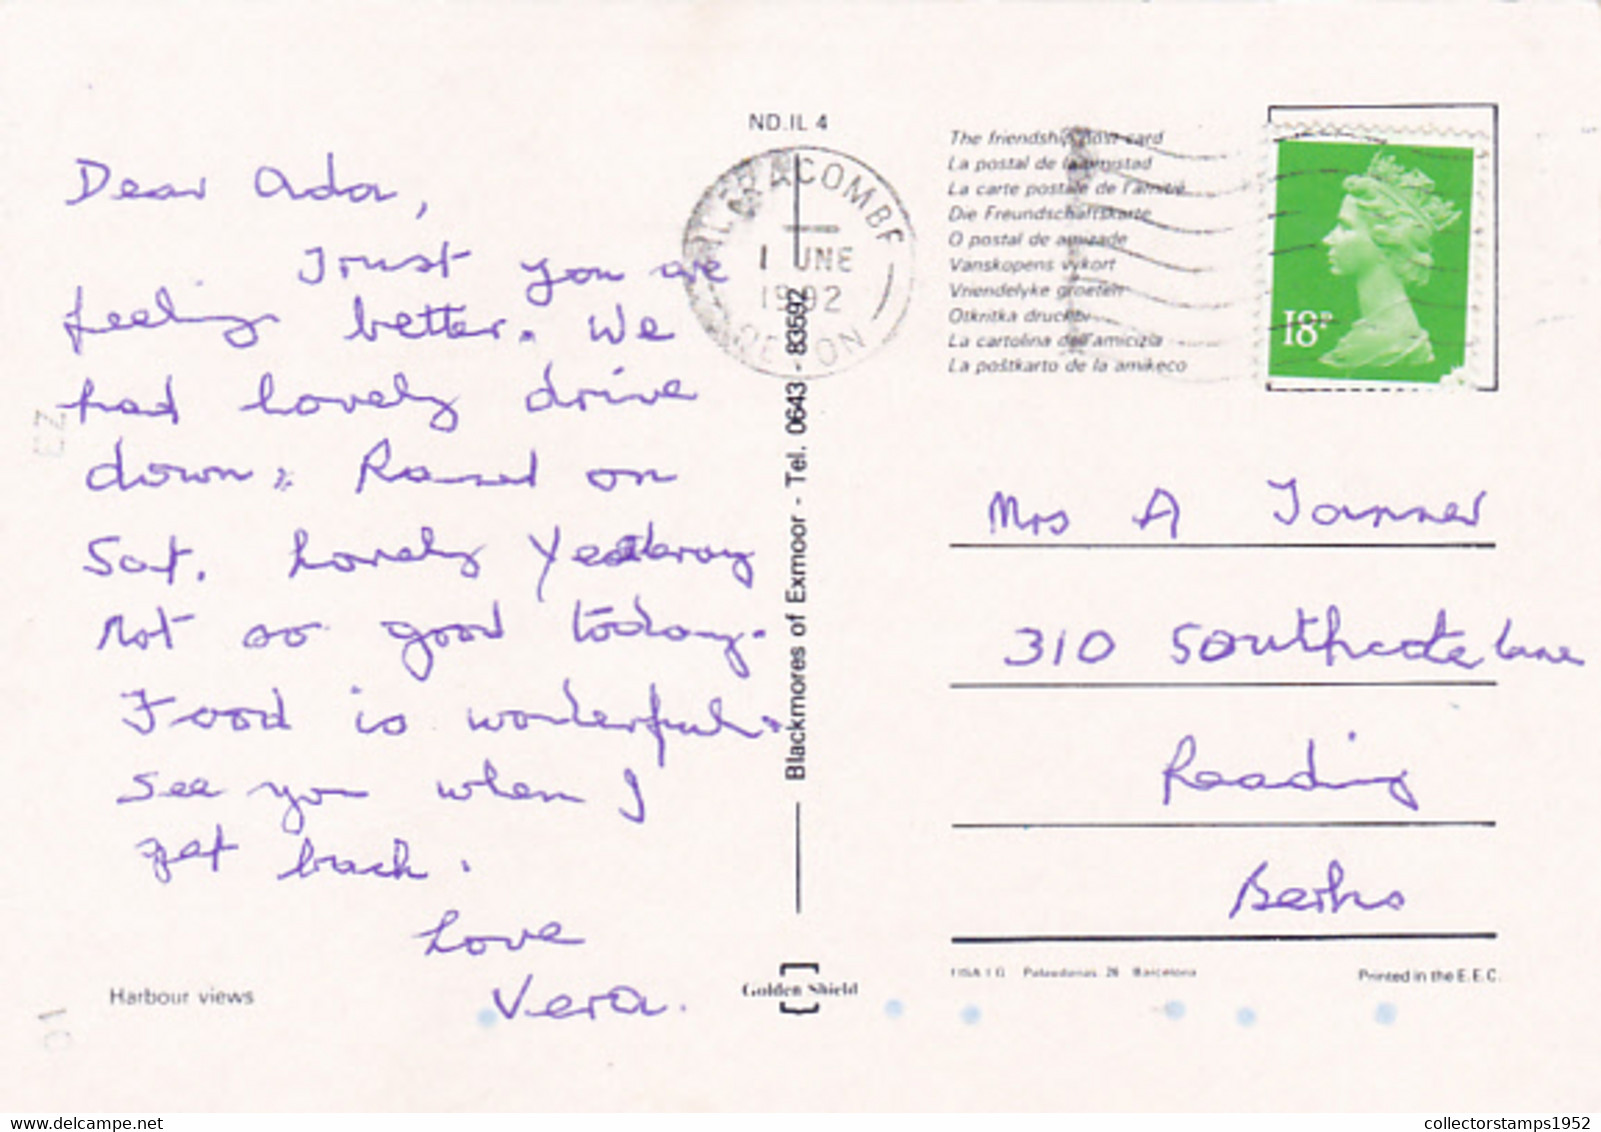 Dear Ada,
Trust you are
feeling better. We
had lovely drive
down; Rained on
Sat. Lovely Yesterday
not so good today.
Food is wonderful.
See you when I
get back.
Love
Vera.
Harbour views
ND.IL 4
ILFRACOMBE
1 JUNE
1992
DEVON
Blackmores of Exmoor - Tel. 0643 - 83592
Golden Shield
The friendship post card
La postal de la amistad
La carte postale de l'amitié
Die Freundschaftskarte
O postal de amizade
Vanskopens vykort
Vriendelyke groeten
Otkritka druchbi
La cartolina dell'amicizia
La poŝtkarto de la amikeco
18P
Mrs A Tanner
310 Southcote Lane
Reading
Berks
Barcelona
Printed in the E.E.C.
collectorstamps1952